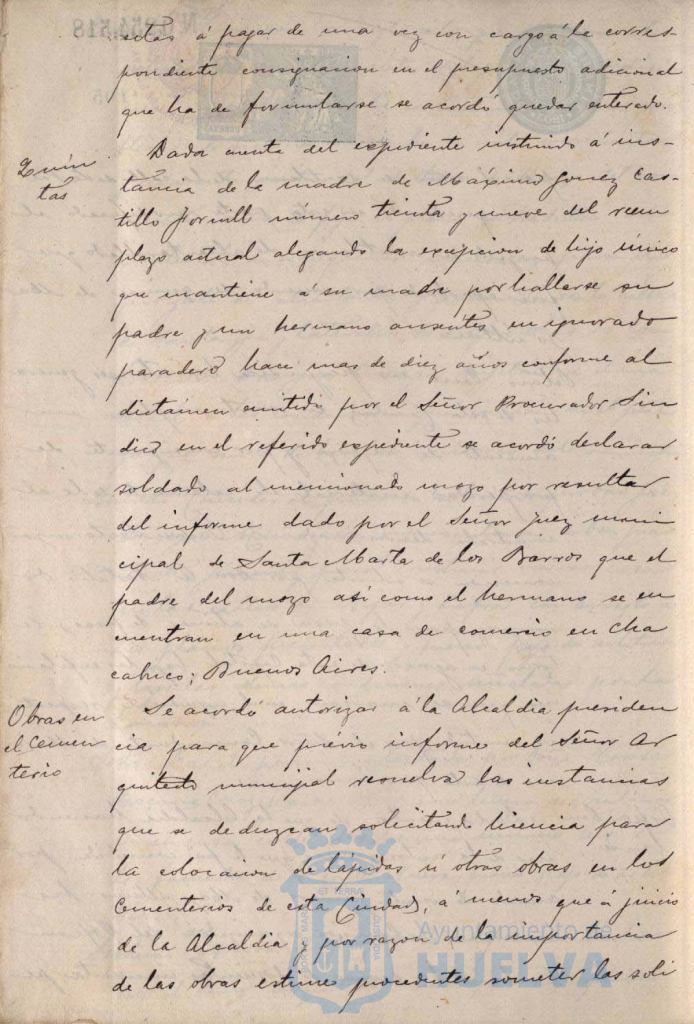 setas á pagar de una vez con cargo á la corres
pondiente consignacion en el presupuesto adicional
que ha de formularse se acordó quedar enterado.
Quin
tas
Dada cuenta del expediente instruido á ins-
tancia de la madre de Máximo Gomez Cas-
tillo número treinta y nueve del reem
plazo actual alegando la excepcion de hijo único
que mantiene á su madre por hallarse su
padre y un hermano ausentes en ignorado
paradero hace mas de diez años conforme al
dictámen emitido por el Señor Procurador Sin
dico en el referido expediente se acordó declarar
soldado al mencionado mozo por resultar
del informe dado por el Señor Juez muni
cipal de Santa Marta de los Barros que el
padre del mozo así como el hermano se en
cuentran en una casa de comercio en Cha
cabuco; Buenos Aires.
Obras en
el Cemen
terio
Se acordó autorizar á la Alcaldia presiden
cia para que prévio informe del Señor Ar
quitecto municipal resuelva las instancias
que se deduzcan solicitando licencia para
la colocacion de lápidas ú otras obras en los
Cementerios de esta Ciudad, á menos que á juicio
de la Alcaldia por razon de la importancia
de las obras estime procedentes someter las soli
Ayuntamiento de
HUELVA